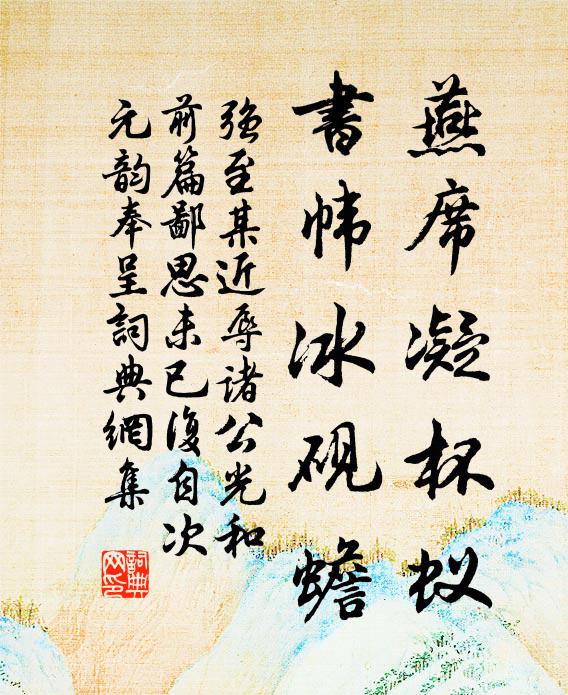 燕席凝杯蚁
書帏冰砚蟾
强至某近辱诸公光和
前篇鄙思未已復自次
元韵奉呈詞典網集
詞典网印